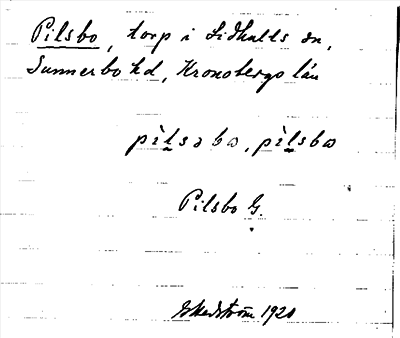 Pilsbo, torp i Lidhults sn,
Sunnerbo hd, Kronobergs län
pìlsəbω, pìlsbω
Pilsbo G.
1920